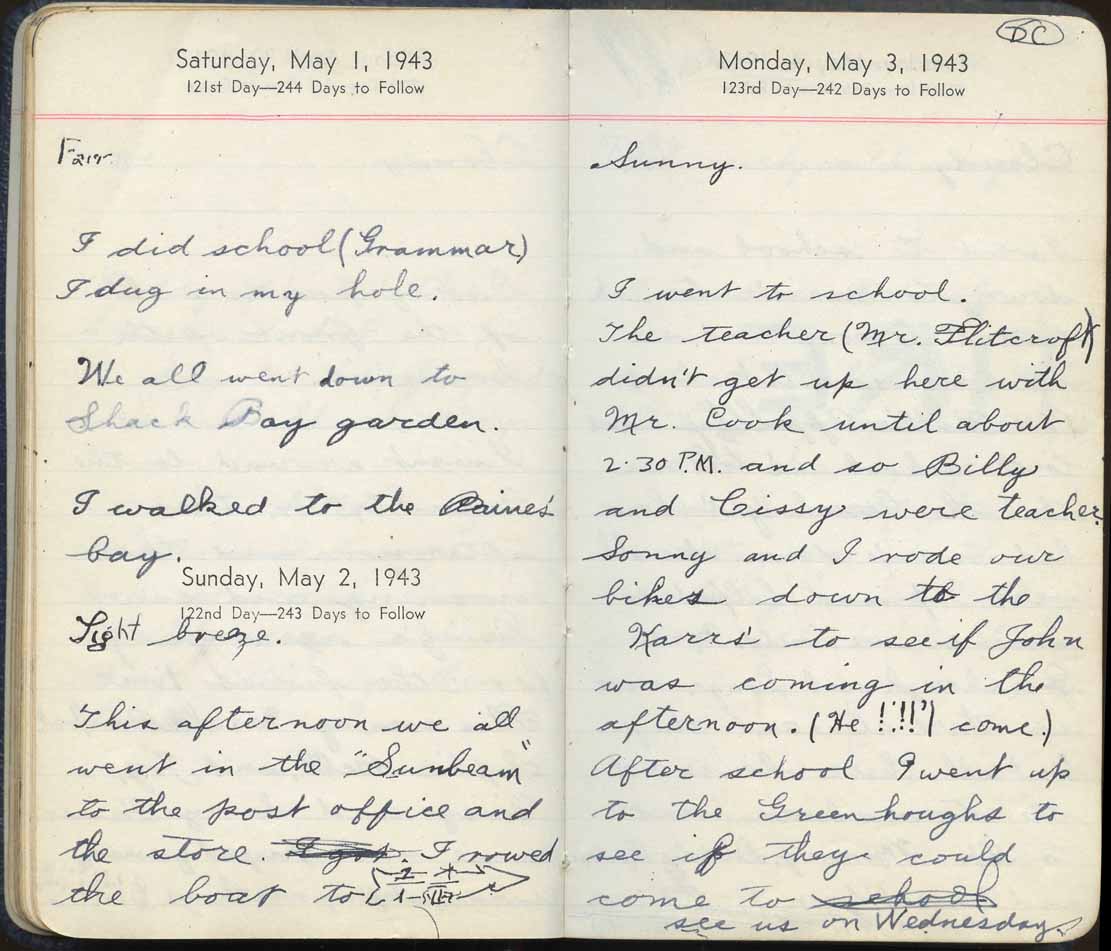 Saturday, May 1, 1943
121st Day—244 Days to Follow
Fair.
I did school (Grammar)
I dug in my hole.
We all went down to
Shack Bay garden.
I walked to the Paines'
bay.
Sunday, May 2, 1943
122nd Day—243 Days to Follow
Light breeze.
This afternoon we all
went in the "Sunbeam"
to the post office and
the store. I got. I rowed
the boat to
DC
Monday, May 3, 1943
123rd Day—242 Days to Follow
Sunny.
I went to school.
The teacher (Mr. Flitcroft)
didn't get up here with
Mr. Cook until about
2.30 P.M. and so Billy
and Cissy were teacher.
Sonny and I rode our
bikes down to the
Karrs' to see if John
was coming in the
afternoon. (He !!!! come.)
After school I went up
to the Greenhoughs to
see if they could
come to school
see us on Wednesday.